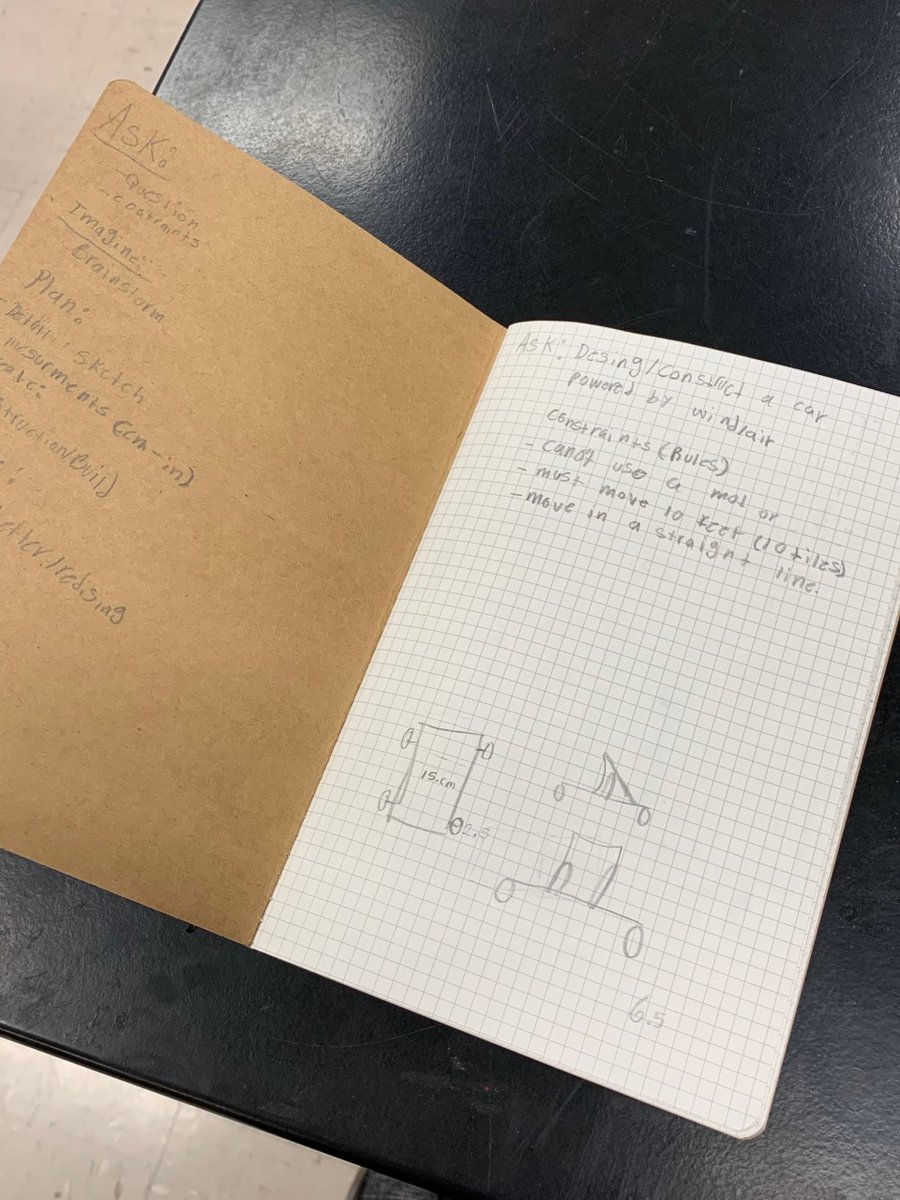 Ask:
- Question
- costraints
Imagine:
Brainstorm
Plan:
Sketch
mesurments (cm-in)
struction/Build
etter/redising
Ask: Desing/construct a car
powered by wind/air
constraints (Rules)
- canot use a mot or
- must move 10 feet (10 tiles)
- move in a straight line.
15.cm
2.5
6.5